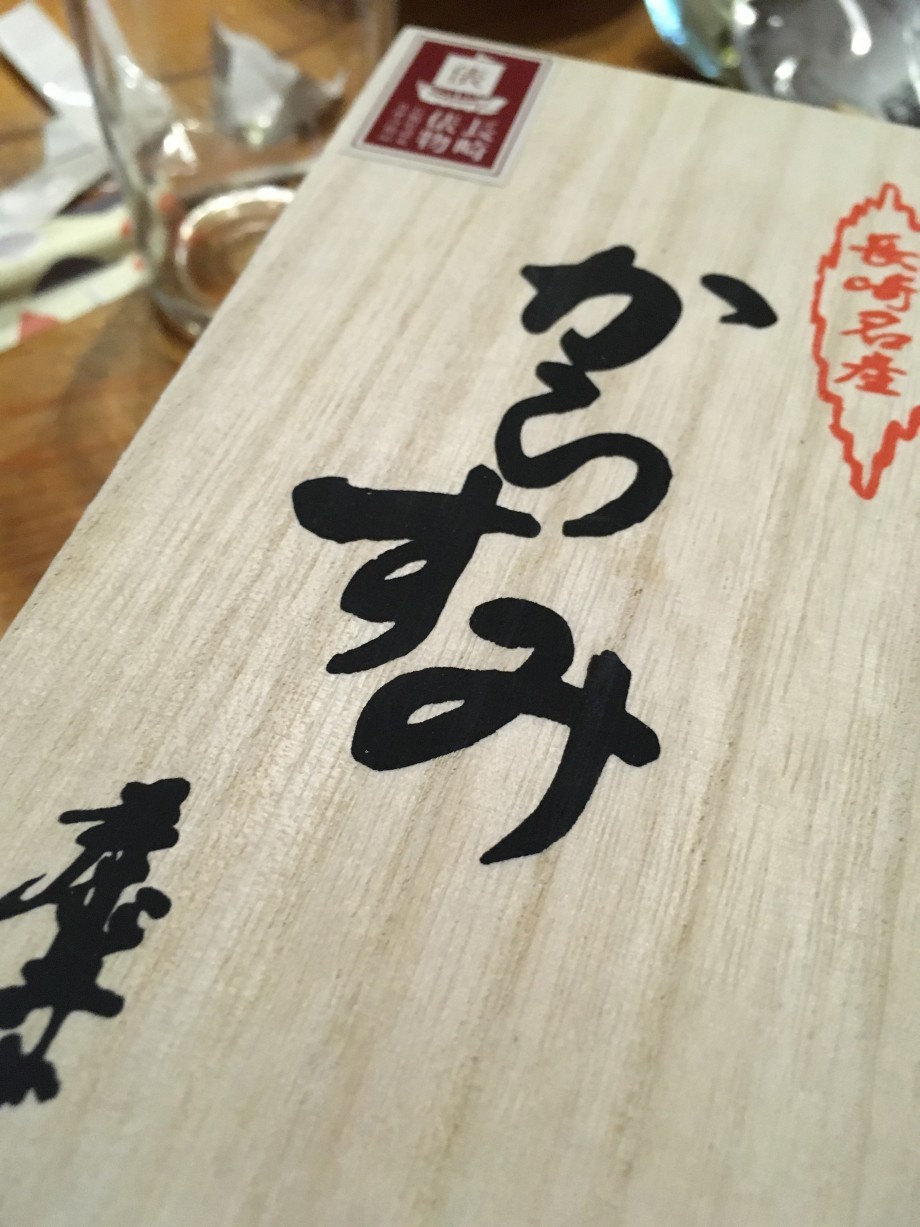 俵
長崎
俵物
長崎名産
からすみ